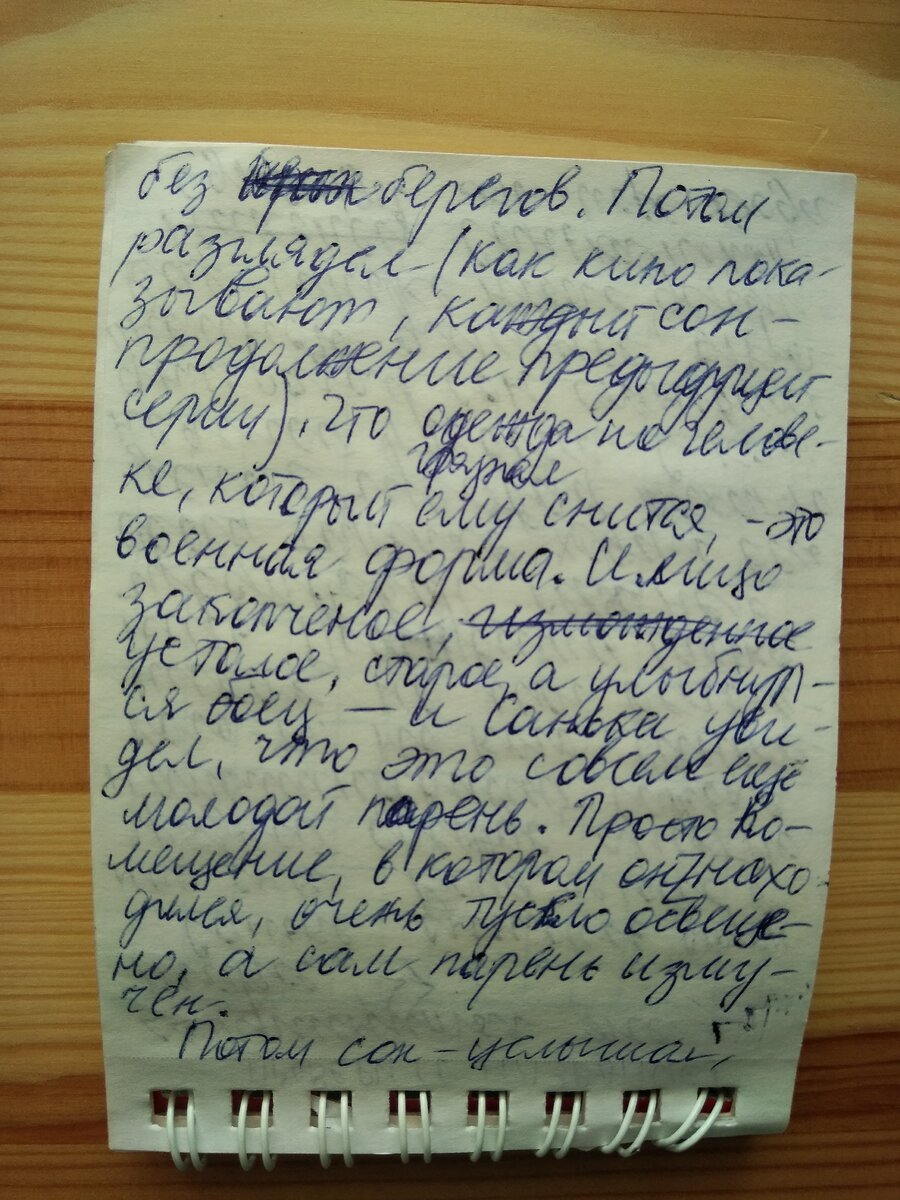 без берегов. Потом
разглядел (как кино пока-
зывают, каждый сон -
продолжение предыдущей
серии), что одежда на челове-
грязная
ке, который ему снится, - это
военная форма. И лицо
закопчёное, измождённое
усталое, старое, а улыбнул-
ся боец — и Санька уви-
дел, что это совсем ещё
молодой парень. Просто по-
мещение, в котором он нахо-
дился, очень тускло освеще-
но, а сам парень изму-
чен.
Потом сон - услышал,